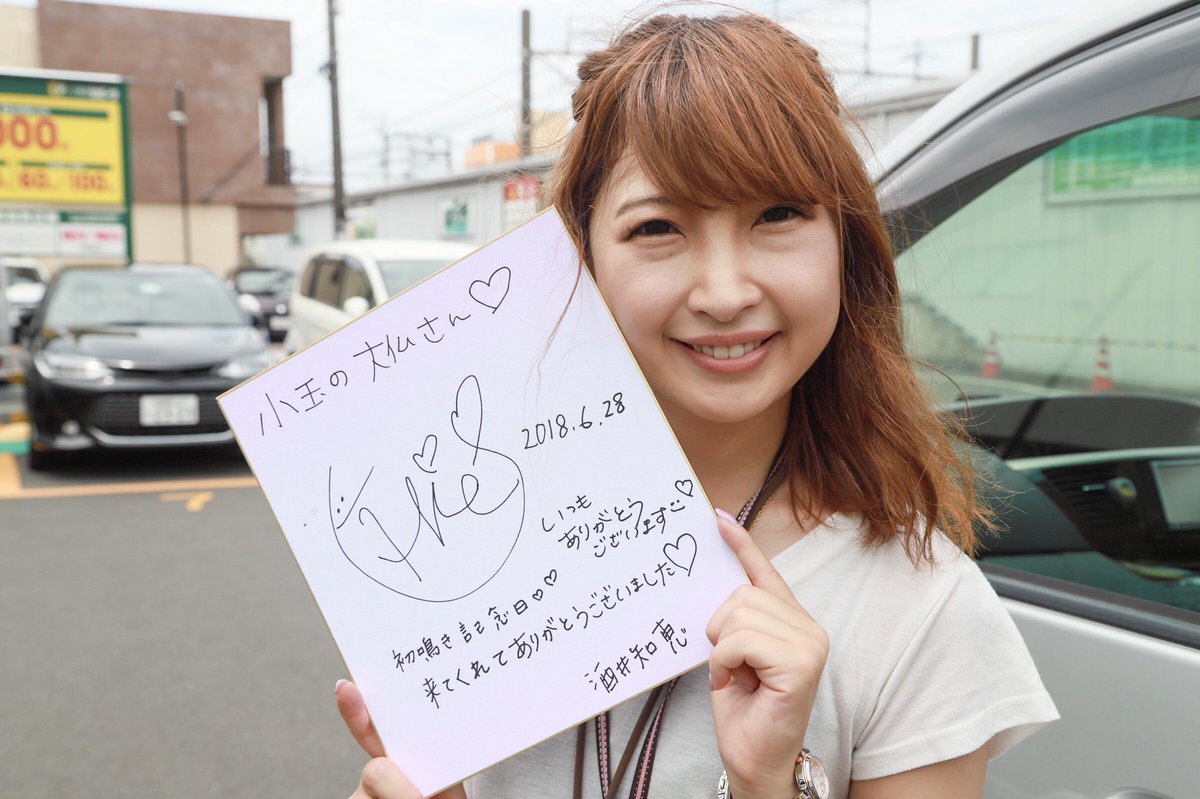 小玉の大仏さん♡
2018.6.28
いつも
ありがとう
ございます♡
初鳴き記念日♡♡
来てくれてありがとうございました♡
酒井知恵
000
60 100